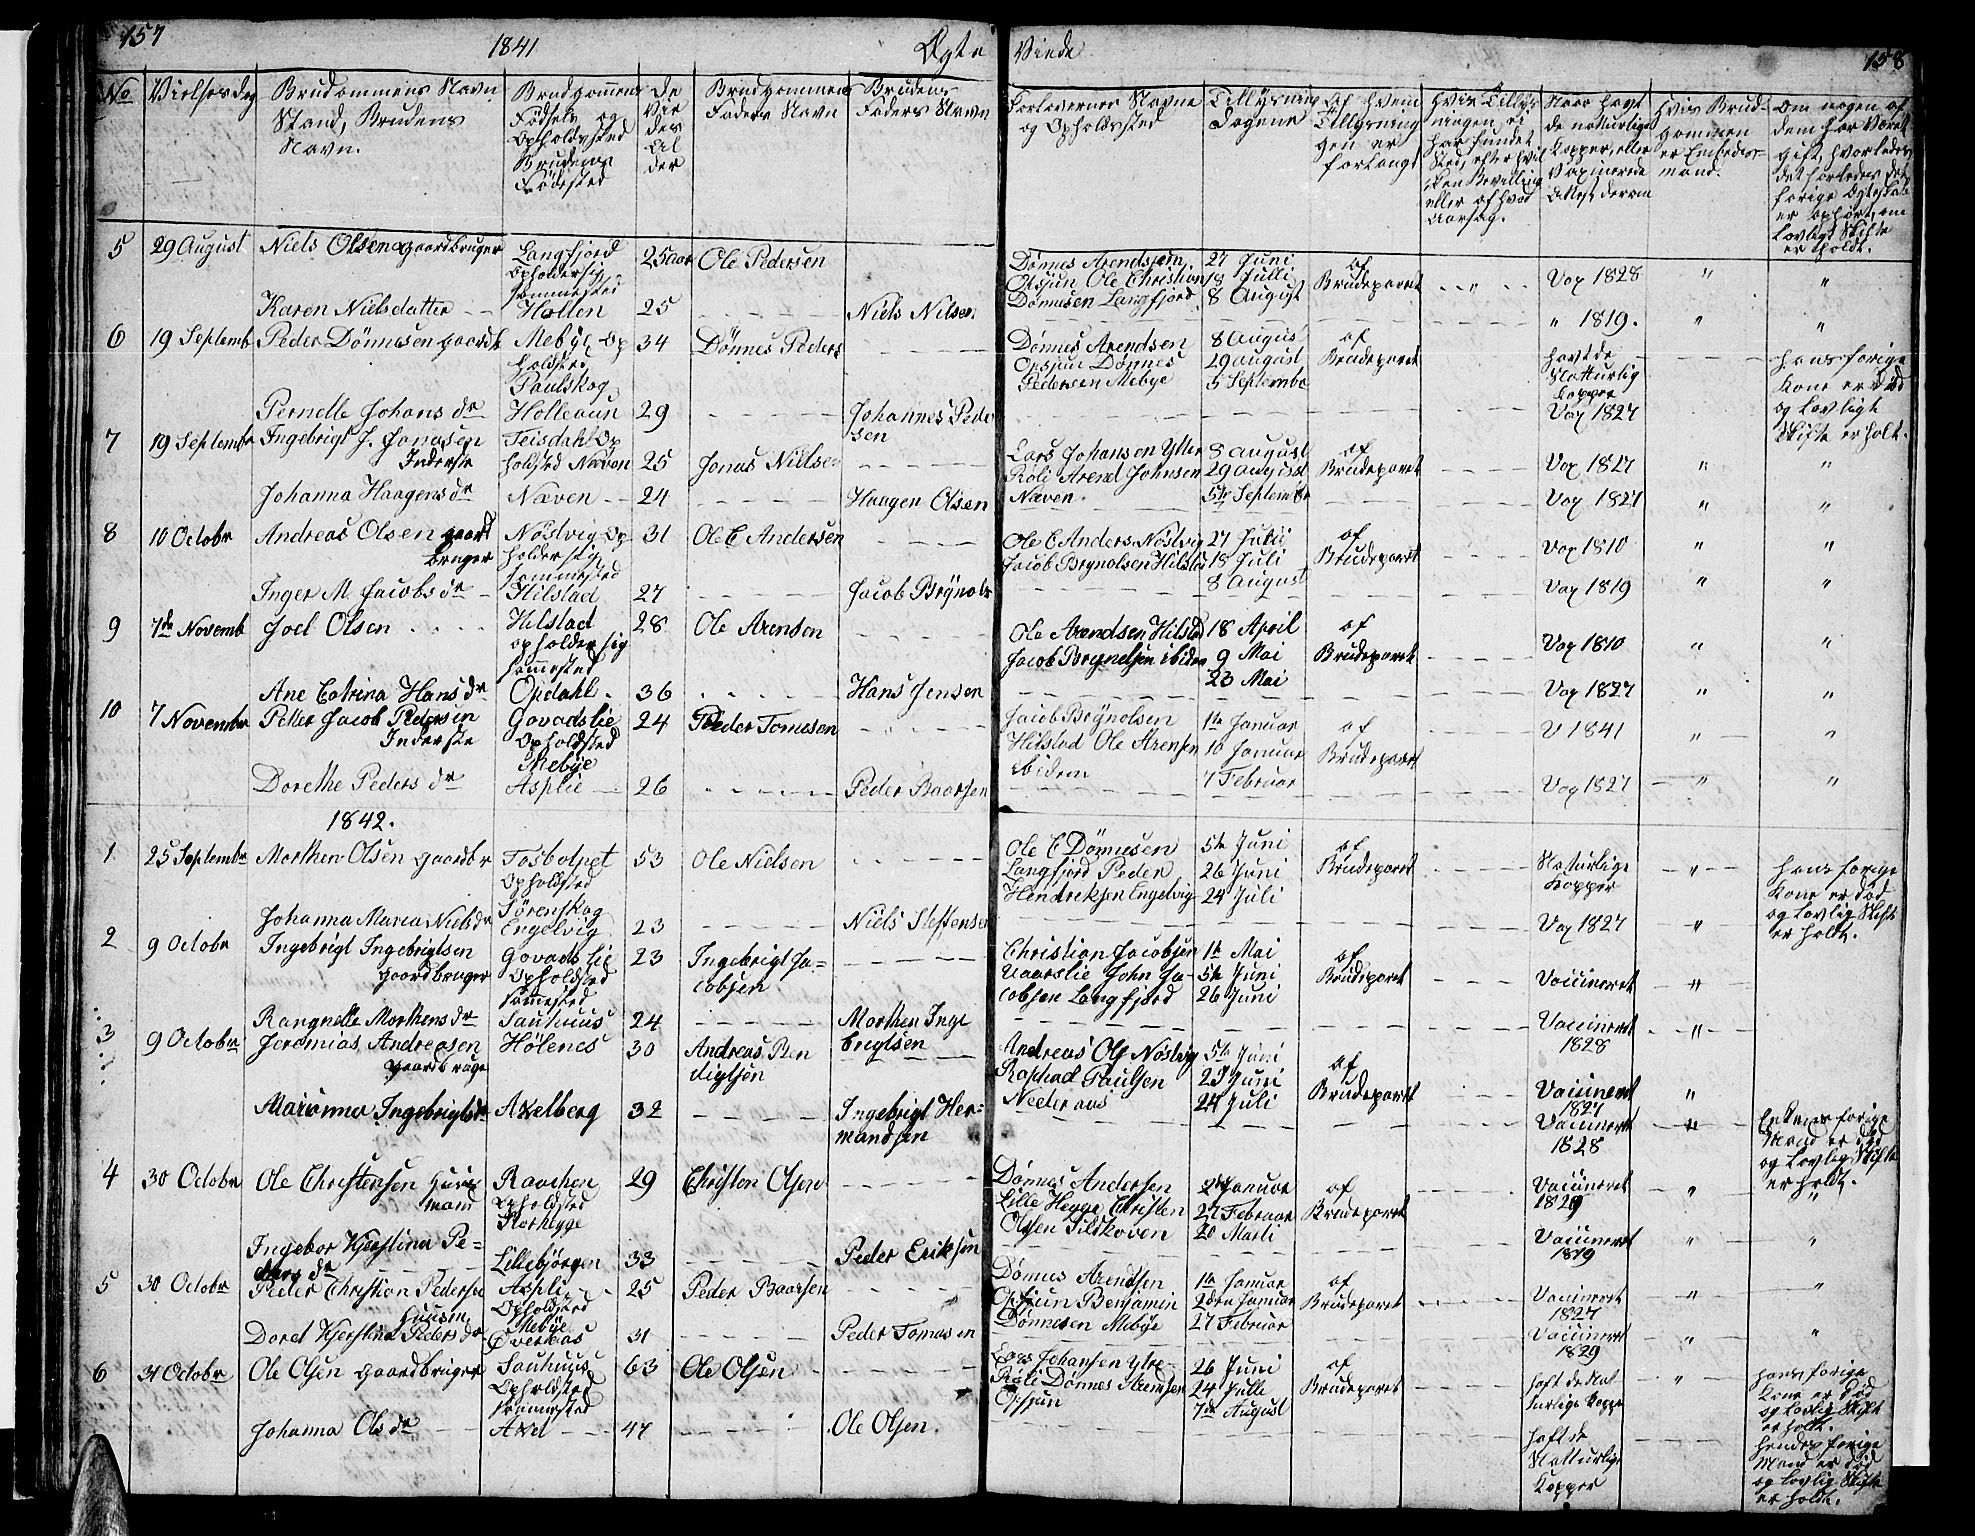 157 1841 Ægte Viede 158
No Vielsesdag Brudgommens Navn Stand, Brudens Navn. Brudgommens Fødsels og Opholdssted Brudens Fødested De Vie des Al der Brudgommens Faders Navn Brudens Faders Navn
Forlovernes Navne og Opholdssted Tillysnings Dagene Af hvem Tillysning gen er forlangt Hvis Tillys ningen ei har fundet Sted, efter hvil ken Bevilling eller af hvad Aarsag. Naar havt de naturlige Kopper, eller Vaxinerede Attest derom Hvis Brud- gommen er Embeds- mand. Om nogen af dem har været gift, hvorledes det forledes det forige Ægteskab er ophørt, om Lovligt Skifte er holdt.
5 29 August Niels Olsen gaardbruger Langfjord opholder sig sammested 25 aar Ole Pedersen
Dønnes Arendsen Opsjun Ole Christian Dønnesen Langfjord 27 Juni 18 Julli 8 August af Brudeparet Vax 1828 " "
Karen Nielsdatter Hollen 25 Niels Nilsen " 1819. " "
6 19 Septemb Peder Dønnesen gaardb Mebye Op holdsted Paulskog 34 Dønnes Peders
Dønnes Arendsen Opsjun Dønnes Pedersen Mebye 8 August 29 august 5 Septembe af Brudeparet havt de Natturlig Kopper hans forige Kone er død og Lovligt Skifte er holt.
Pernelle Johans dr Holleaun 29 Johannes Peder sen Vax 1827
7 19 Septembr Ingebrigt J. Jonasen Inderste Teisdahl Op holdsted Næven 25 Jonas Nielsen
Lars Johansen Ytter Røli Arend Johnsen Næven. 8 august 29 august 5te Septembr af Brudeparet Vax 1827 " "
Johanna Haagens dr Næven 24 Haagen Olsen Vax 1827 " "
8 10 Octobr Andreas Olsen gaard bruger Nöstvig Op holder sig sammested 31 Ole C Andersen
Ole C Anders. Nöstvig Jacob Brynolsen Hilstad 27 Julii 18 Juli 8 August af Brudeparet Vax 1810 " "
Inger M. Jacobs dr Hilstad 27 Jacob Brÿnols Vax 1819 " "
9 7de Novemb Joel Olsen Hilstad opholder sig sammested 28 Ole Arensen
Ole Arendsen Hilstd Jacob Brynelsen ibidem 18 April 9 Mai 23 Mai af Brudeparet Vax 1810 " "
Ane Catrina Hans dr Opdahl 36 Hans Jensen Vax 1827 " "
10 7 Novembr Petter Jacob Pedersen Inderste Govadslie Opholdsted Mebÿe 24 Peder Tomesen
Jacob Brÿnolsen Hilstad Ole Arensen ibidem 1te Januar 10 Januar 7 Februar af Brudeparet V 1841 " "
Dorethe Peders dr Asplie 26 Peder Baarsen Vax 1827 " "
1842.
1 25 Septembr Morthen Olsen gaardbr Fosbotnet Opholdsted Sörenskog 53 Ole Nielsen
Ole C Dønnesen Langfjord Peder Hendriksen Engelvig 5te Juni 26 Juni 24 Juli af Brudeparet Naturlige Kopper " hans forige Kone er død og Lovlig Skifte er holdt.
Johanna Maria Niels dr Engelvig 23 Niels Steffensen Vax 1827 "
2 9 Octobr Ingebrigt Ingebrigtsen gaardbruger Govadslie Opholdsted sammested 23 Ingebrigt Ja= cobsen
Christian Jacobsen Vaarslie John Ja- cobsen Langfjord 1te Mai 5te Juni 26 Juni af Brudeparet Vaccineret "
Rangnelle Morthens dr Sauhuus 24 Morthen Inge brigtsen Vaccineret 1828 "
3 9 Octobr Jeremias Andreasen gaardbruge Hölenes 30 Andreas Ben digtsen
Andreas Ols Nöstvig Raphael Paulsen Nederaas 5te Juni 25 Juni 24 Juli af Brudeparet Vaccineret 1827 "
Marianna Ingebrigts dr Axelberg 32 Ingebrigt Her= mandsen Vaccineret 1828 " Enkens forige Mand er død og Lovlig Skifte er holdt.
4 30 Octobr Ole Christensen Huus mand Raachen Opholdsted Storhegge 29 Christen Olsen
Dønnes Andersen Lille Hegge Christen Olsen Sildhoven 2de Januar 27 Februar 20 Marti af Brudeparet Vaccineret 1829 " "
Ingebor Kjerstina Pe= ders dr Lillebjörgen 33 Peder Eriksen Vaccineret 1819 " "
5 30 Octobr Peder Christian Pedersen Huusm. Aspli Opholdsted Mebÿe 25 Peder Baarsen
Dønnes Arendsen Opsjun Benjamin Dønnesen Mebÿe 1te Januar 2den Januar 27 Februar af Brudeparet Vaccineret 1827 " "
Doret Kjerstina Peders dr Overaas 31 Peder Tomasen Vaccineret 1829 " "
6 31 Octobr Ole Olsen gaardbruger Sauhuus Opholdsted sammested 63 Ole Olsen
Lars Johansen Ytre Røli Dønnes Arendsen Opsjun 26 Juni 24 Julli 7de August af Brudeparet haft de Nat turlige Kopper " hans forige Kone er død og Lovlig Skifte er holt.
Johanna Ols dr Axel 47 Ole Olsen. haft de Natturlige Kopper hendes forige Mand er død og Lovlig Skifte er holdt.